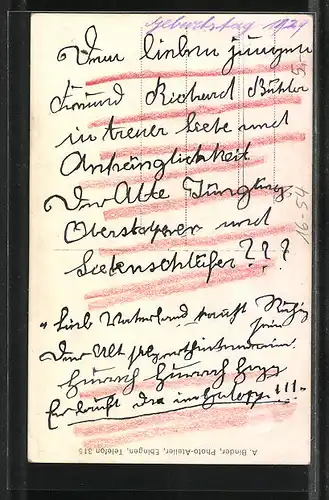 Geburtstag 1929
Dem lieben jungen
Freund Richard Bühler
in treuer Liebe und
Anhänglichkeit
Der Alte Jüngling,
und
Seelenschläfer???
"Lieb Vaterland, Ruhig
sein,
Der Alt
Hurrah Hurrah
Er lauft !!!"
16-54
A. Binder, Photo-Atelier, Ebingen, Telefon 315